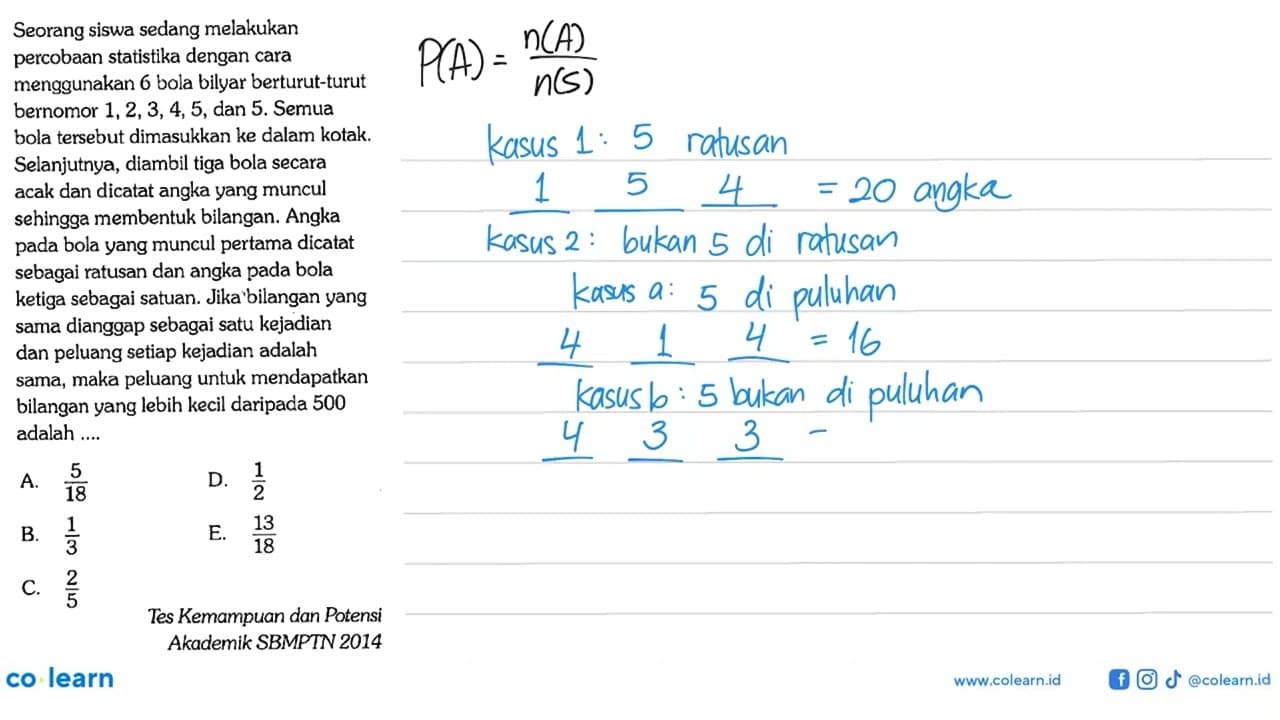 Seorang siswa sedang melakukan
percobaan statistika dengan cara
menggunakan 6 bola bilyar berturut-turut
bernomor 1, 2, 3, 4, 5, dan 5. Semua
bola tersebut dimasukkan ke dalam kotak.
Selanjutnya, diambil tiga bola secara
acak dan dicatat angka yang muncul
sehingga membentuk bilangan. Angka
pada bola yang muncul pertama dicatat
sebagai ratusan dan angka pada bola
ketiga sebagai satuan. Jika bilangan yang
sama dianggap sebagai satu kejadian
dan peluang setiap kejadian adalah
sama, maka peluang untuk mendapatkan
bilangan yang lebih kecil daripada 500
adalah ....
A. 5/18 D. 1/2
B. 1/3 E. 13/18
C. 2/5
Tes Kemampuan dan Potensi
Akademik SBMPTN 2014
P(A) = n(A)/n(S)
kasus 1: 5 ratusan
1 5 4 = 20 angka
kasus 2: bukan 5 di ratusan
kasus a: 5 di puluhan
4 1 4 = 16
kasus b: 5 bukan di puluhan
4 3 3 -
co learn
www.colearn.id @colearn.id